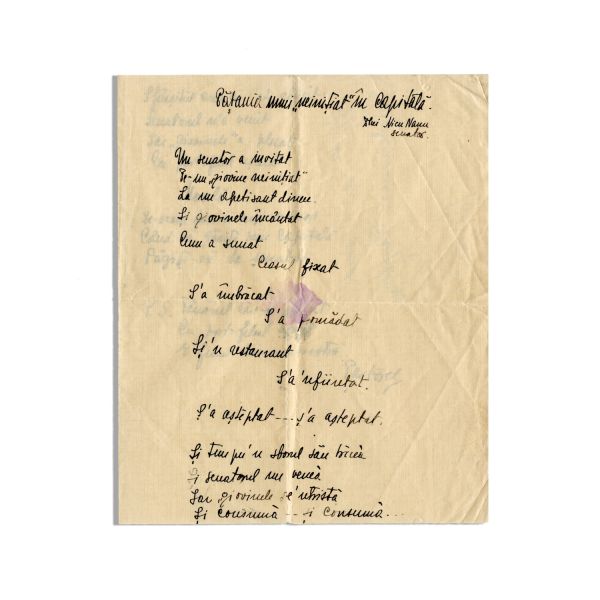 Pățania unui „neinițiat” în Capitală.
Dlui Nicu Nanu
senator.
Un senator a invitat
Pe-un giovine neinițiat”
La un apetisant dineu
Și giovinele încântat
Cum a sunat
Ceasul fixat
S'a îmbrăcat
S'a pomădat
Și'n restaurant
S'a'nființat.
S'a așteptat .... s'a așteptat.
Și timpu'n sborul său trecea
Și senatorul nu venea
Iar giovinele se'ntristă
Și consumă ... și consumă ...